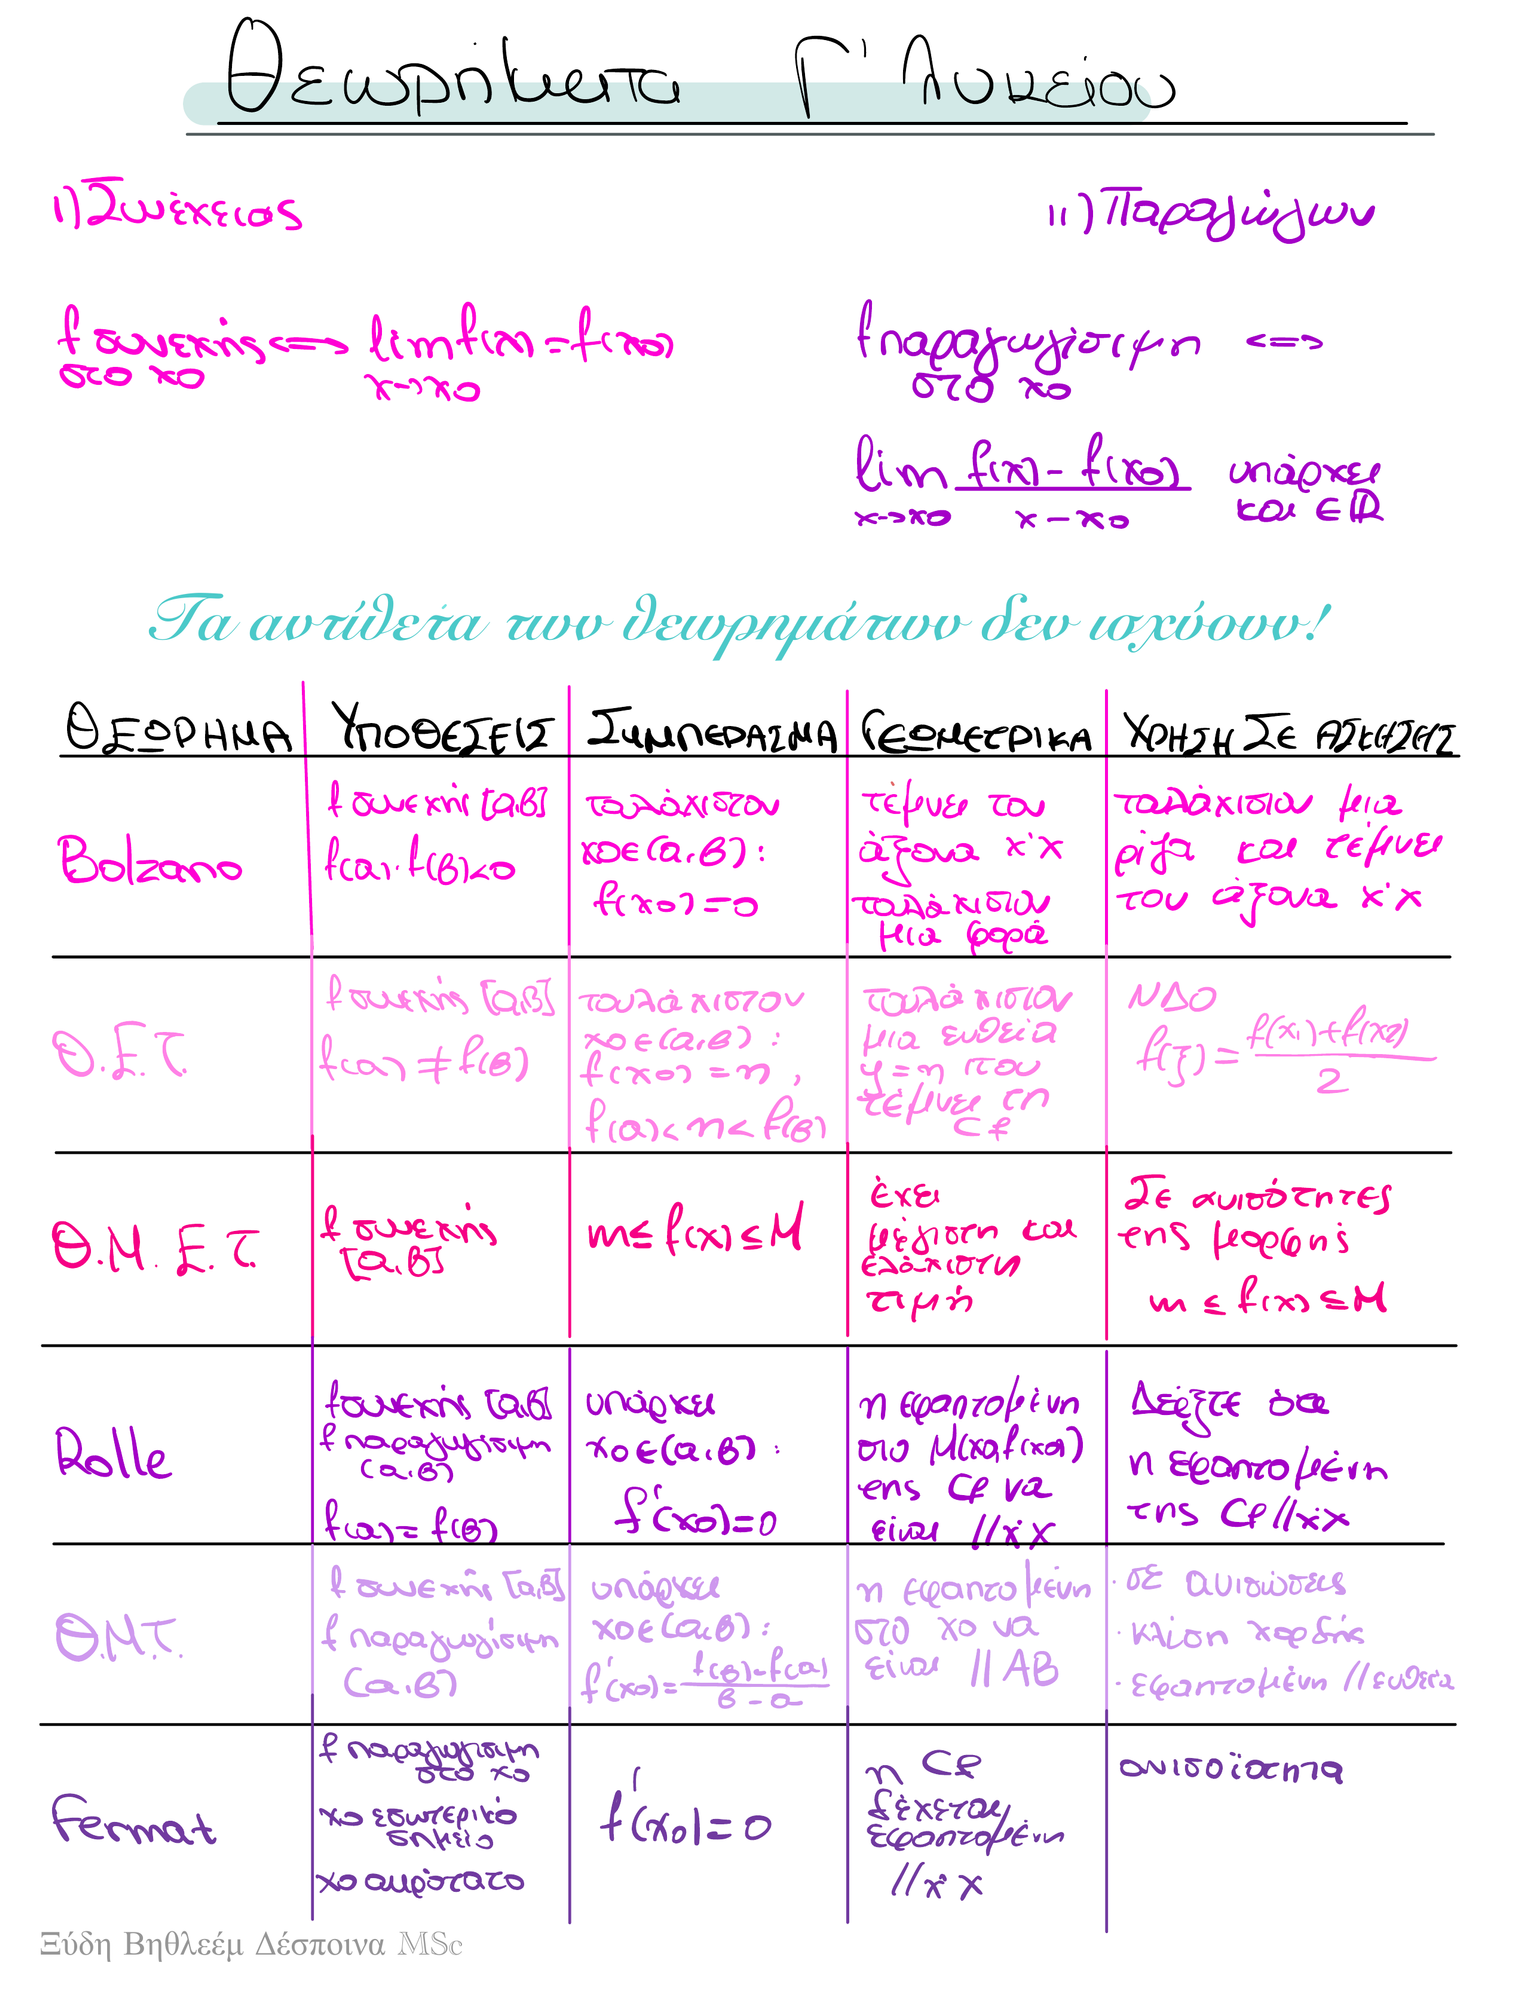 Θεωρήματα Γ' Λυκείου
i) Συνέχειας
ii) Παραγώγων
f συνεχής <=> lim f(x) = f(x0)
στο x0 x->x0
f παραγωγίσιμη <=>
στο x0
lim f(x) - f(x0) υπάρχει
x->x0 x - x0 και ∈ℝ
Τα αντίθετα των θεωρημάτων δεν ισχύουν!
ΘΕΩΡΗΜΑ ΥΠΟΘΕΣΕΙΣ ΣΥΜΠΕΡΑΣΜΑ ΓΕΩΜΕΤΡΙΚΑ ΧΡΗΣΗ ΣΕ ΑΣΚΗΣΕΙΣ
Bolzano
f συνεχής [α,β]
f(α)·f(β)<0
τουλάχιστον
x0∈(α,β):
f(x0)=0
τέμνει τον
άξονα x'x
τουλάχιστον
μια φορά
τουλάχιστον μια
ρίζα και τέμνει
τον άξονα x'x
Θ.Ε.Τ.
f συνεχής [α,β]
f(α) ≠ f(β)
τουλάχιστον
x0∈(α,β):
f(x0) = η,
f(α)< η < f(β)
τουλάχιστον
μια ευθεία
y=η που
τέμνει τη
Cf
ΝΔΟ
f(ξ) = f(x1)+f(x2)
2
Θ.Μ.Ε.Τ.
f συνεχής
[α,β]
m≤ f(x) ≤ M
έχει
μέγιστη και
ελάχιστη
τιμή
Σε ανισότητες
της μορφής
m ≤ f(x) ≤ M
Rolle
f συνεχής [α,β]
f παραγωγίσιμη
(α,β)
f(α) = f(β)
υπάρχει
x0∈(α,β):
f'(x0)=0
η εφαπτομένη
στο M(x0,f(x0))
της Cf να
είναι //x'x
Δείξτε ότι
η εφαπτομένη
της Cf //x'x
Θ.Μ.Τ.
f συνεχής [α,β]
f παραγωγίσιμη
(α,β)
υπάρχει
x0∈(α,β):
f'(x0)= f(β)-f(α)
β - α
η εφαπτομένη
στο x0 να
είναι // ΑΒ
· σε ανισώσεις
· κλίση χορδής
· εφαπτομένη // ευθεία
Fermat
f παραγωγίσιμη
στο x0
x0 εσωτερικό
σημείο
x0 ακρότατο
f'(x0)=0
η Cf
δέχεται
εφαπτομένη
//x'x
ανισοϊσότητα
Ξύδη Βηθλεέμ Δέσποινα MSc